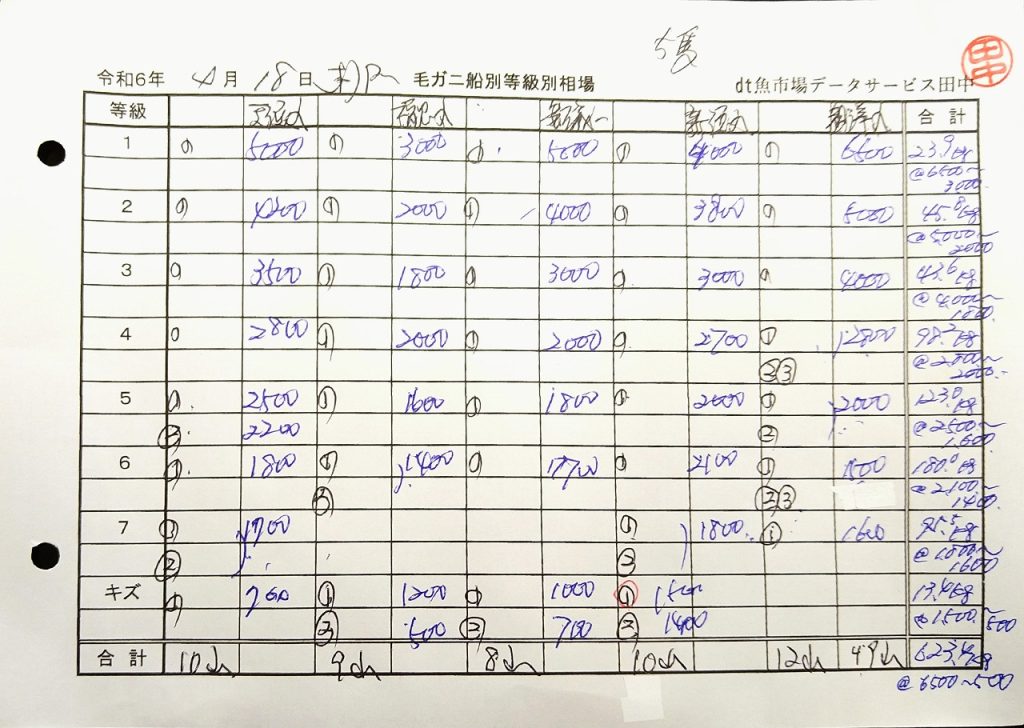 令和6年 4月 18日 毛ガニ船別等級別相場 dt魚市場データサービス田中
田中
等級 合計
1 ① 5000 ① 3000 ① 5000 ① 4000 ① 6500 23.9kg
@6500~3000
2 ① 4200 ① 2000 ① 4000 ① 3800 ① 5000 45.8kg
@5000~2000
3 ① 3500 ① 1800 ① 3000 ① 3000 ① 4000 43.6kg
@4000~1800
4 ① 2800 ① 2000 ① 2000 ① 2700 ① 2800 98.2kg
②③ @2800~2000
5 ① 2500 ① 1600 ① 1800 ① 2000 ① 2000 123.0kg
② 2200 ② @2500~1600
6 ① 1800 ① 1400 ① 1700 ① 2100 ① 180.0kg
② ②③ @2100~1400
7 ① 1700 ① 1800 ① 1600 95.5kg
② ② @1800~1600
キズ ① 700 ① 1200 ① 1000 ① 1500 13.4kg
② 500 ② 700 ② 1400 @1500~500
合計 10山 9山 8山 10山 12山 49山 623.4kg
@6500~500